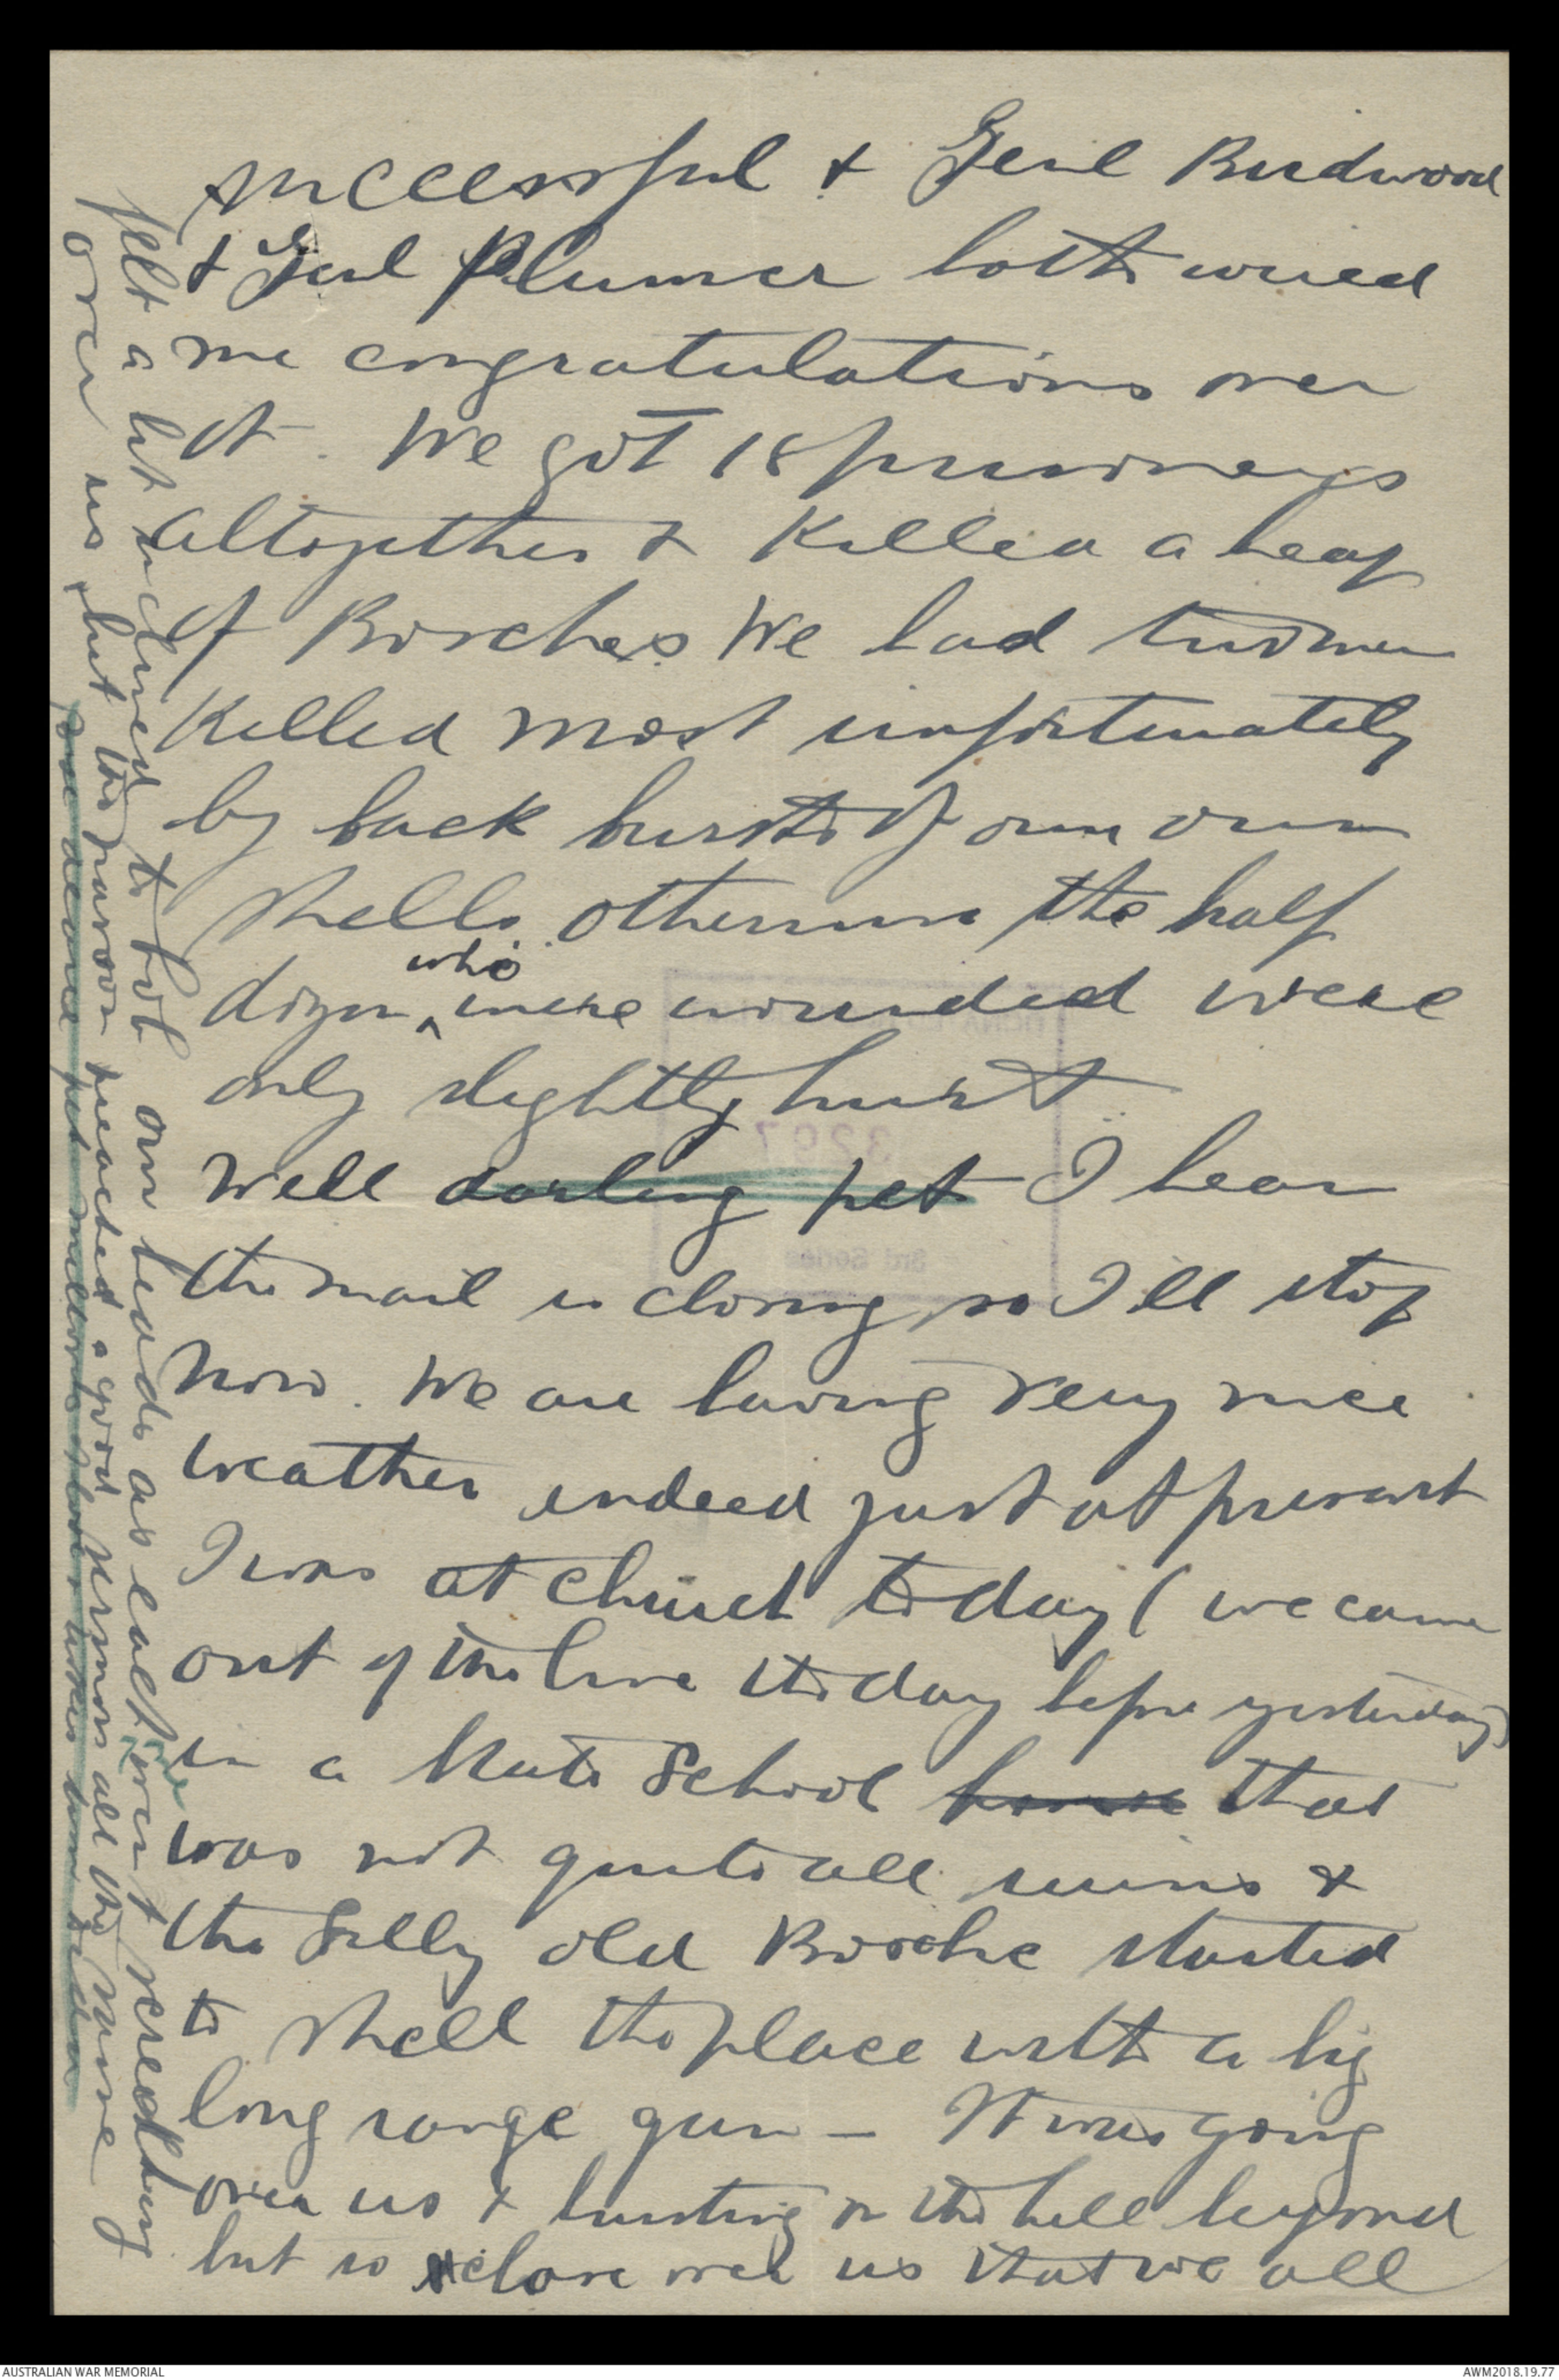 successful & Genl Birdwood
& Genl Plumer both wired
me congratulations over
it. We got 18 prisoners
altogether & killed a heap
of Bosches. We had two men
killed most unfortunately
by back bursts of our own
shells. otherwise the half
dozen who were wounded were
only slightly hurt.
Well darling pet I hear
the mail is closing so I'll stop
now. We are having very nice
weather indeed just at present
I was at church today (we came
out of the line the day before yesterday)
in a State School house that
was not quite all ruins &
the silly old Bosche started
to shell the place with a big
long range gun – It was going
over us & bursting on the hill beyond
but so close over us that we all
felt a bit inclined to bob our heads as each one went screeching
over us, but the parson preached a good sermon all the same
3297
3rd Series
AUSTRALIAN WAR MEMORIAL
AWM2018.19.77